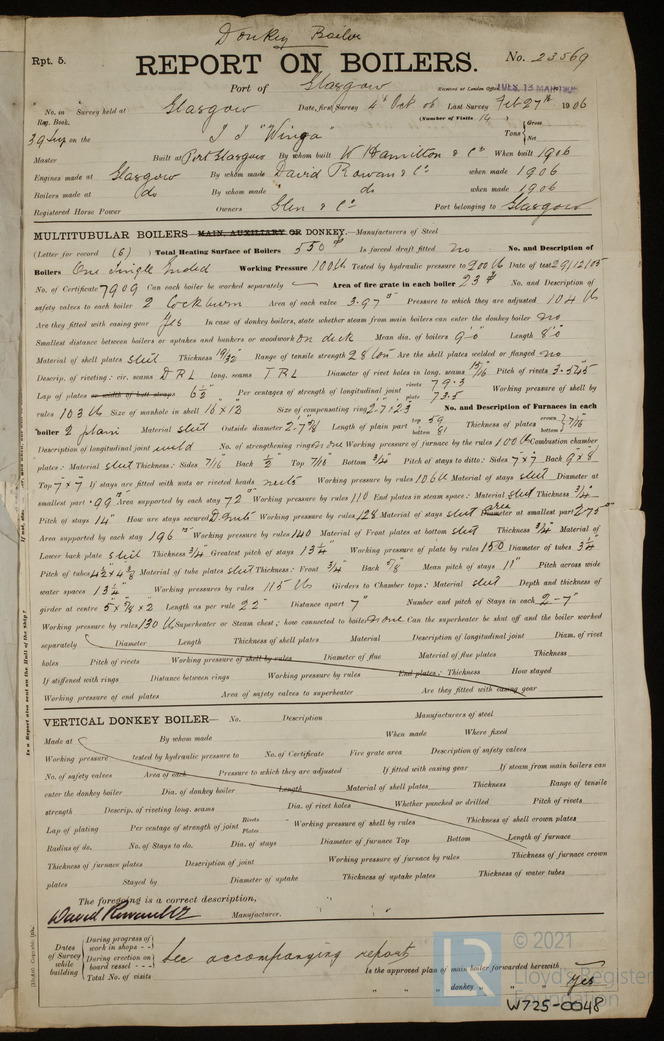 Donkey Boiler
Rpt. 5.
REPORT ON BOILERS.
No. 23569
Port of Glasgow
Received at London Office
No. in Reg. Book. Survey held at Glasgow Date, first Survey 4th Oct 05 Last Survey Feb 27th 1906
(Number of Visits 14)
39 Sup on the S S "Winga" Tons { Gross Net
Master Built at Port Glasgow By whom built W Hamilton & Co When built 1906
Engines made at Glasgow By whom made David Rowan & Co when made 1906
Boilers made at do By whom made do when made 1906
Registered Horse Power Owners Glen & Co Port belonging to Glasgow
MULTITUBULAR BOILERS MAIN, AUXILIARY OR DONKEY.—Manufacturers of Steel
(Letter for record (S) ) Total Heating Surface of Boilers 550 Is forced draft fitted no No. and Description of
Boilers One Single Ended Working Pressure 100 lb Tested by hydraulic pressure to 200 lb Date of test 29/12/05
No. of Certificate 7909 Can each boiler be worked separately Area of fire grate in each boiler 23 No. and Description of
safety valves to each boiler 2 Cockburn Area of each valve 3.97 Pressure to which they are adjusted 104 lb
Are they fitted with easing gear Yes In case of donkey boilers, state whether steam from main boilers can enter the donkey boiler no
Smallest distance between boilers or uptakes and bunkers or woodwork on deck Mean dia. of boilers 9'-0" Length 8'-0"
Material of shell plates steel Thickness 19/32" Range of tensile strength 28 ton Are the shell plates welded or flanged no
Descrip. of riveting: cir. seams D R L long. seams T R L Diameter of rivet holes in long. seams 15/16 Pitch of rivets 3.545
Lap of plates or width of butt straps 6 1/2" Per centages of strength of longitudinal joint rivets 79.3 plate 73.5 Working pressure of shell by
rules 103 lb Size of manhole in shell 16 x 12 Size of compensating ring No. and Description of Furnaces in each
boiler 2 plain Material steel Outside diameter Length of plain part top 59 bottom 61 Thickness of plates crown bottom } 7/16
Description of longitudinal joint weld No. of strengthening rings none Working pressure of furnace by the rules 100 lb Combustion chamber
plates: Material steel Thickness: Sides 7/16 Back 1/2 Top 7/16 Bottom 3/4 Pitch of stays to ditto: Sides 7 x 7 Back 9 x 8
Top 7 x 7 If stays are fitted with nuts or riveted heads nuts Working pressure by rules 106 lb Material of stays steel Diameter at
smallest part .99 Area supported by each stay 72 Working pressure by rules 110 End plates in steam space: Material steel Thickness 3/4
Pitch of stays 14" How are stays secured D. nuts Working pressure by rules 128 Material of stays steel area Diameter at smallest part 2.75
Area supported by each stay 196 Working pressure by rules 140 Material of Front plates at bottom steel Thickness 3/4" Material of
Lower back plate steel Thickness 3/4 Greatest pitch of stays 13 3/4 Working pressure of plate by rules 150 Diameter of tubes 3 1/4
Pitch of tubes 4 1/2 x 4 3/8 Material of tube plates steel Thickness: Front 3/4 Back 5/8 Mean pitch of stays 11" Pitch across wide
water spaces 13 1/4" Working pressures by rules 115 lb Girders to Chamber tops: Material steel Depth and thickness of
girder at centre 5 x 5/8 x 2 Length as per rule 22" Distance apart 7" Number and pitch of Stays in each 2 - 7"
Working pressure by rules 130 lb Superheater or Steam chest; how connected to boiler none Can the superheater be shut off and the boiler worked
separately Diameter Length Thickness of shell plates Material Description of longitudinal joint Diam. of rivet
holes Pitch of rivets Working pressure of shell by rules Diameter of flue Material of flue plates Thickness
If stiffened with rings Distance between rings Working pressure by rules End plates: Thickness How stayed
Working pressure of end plates Area of safety valves to superheater Are they fitted with easing gear
VERTICAL DONKEY BOILER— No. Description Manufacturers of steel
Made at By whom made When made Where fixed
Working pressure tested by hydraulic pressure to No. of Certificate Fire grate area Description of safety valves
No. of safety valves Area of each Pressure to which they are adjusted If fitted with easing gear If steam from main boilers can
enter the donkey boiler Dia. of donkey boiler Length Material of shell plates Thickness Range of tensile
strength Descrip. of riveting long. seams Dia. of rivet holes Whether punched or drilled Pitch of rivets
Lap of plating Per centage of strength of joint Rivets Plates Working pressure of shell by rules Thickness of shell crown plates
Radius of do. No. of Stays to do. Dia. of stays Diameter of furnace Top Bottom Length of furnace
Thickness of furnace plates Description of joint Working pressure of furnace by rules Thickness of furnace crown
plates Stayed by Diameter of uptake Thickness of uptake plates Thickness of water tubes
The foregoing is a correct description,
David Rowan & Co Manufacturer.
Dates of Survey while building { During progress of work in shops - - During erection on board vessel - - - Total No. of visits
See accompanying report
Is the approved plan of main boiler forwarded herewith
" " " donkey " " Yes
© 2021
LR
Lloyd's Register
Foundation
W725-0048